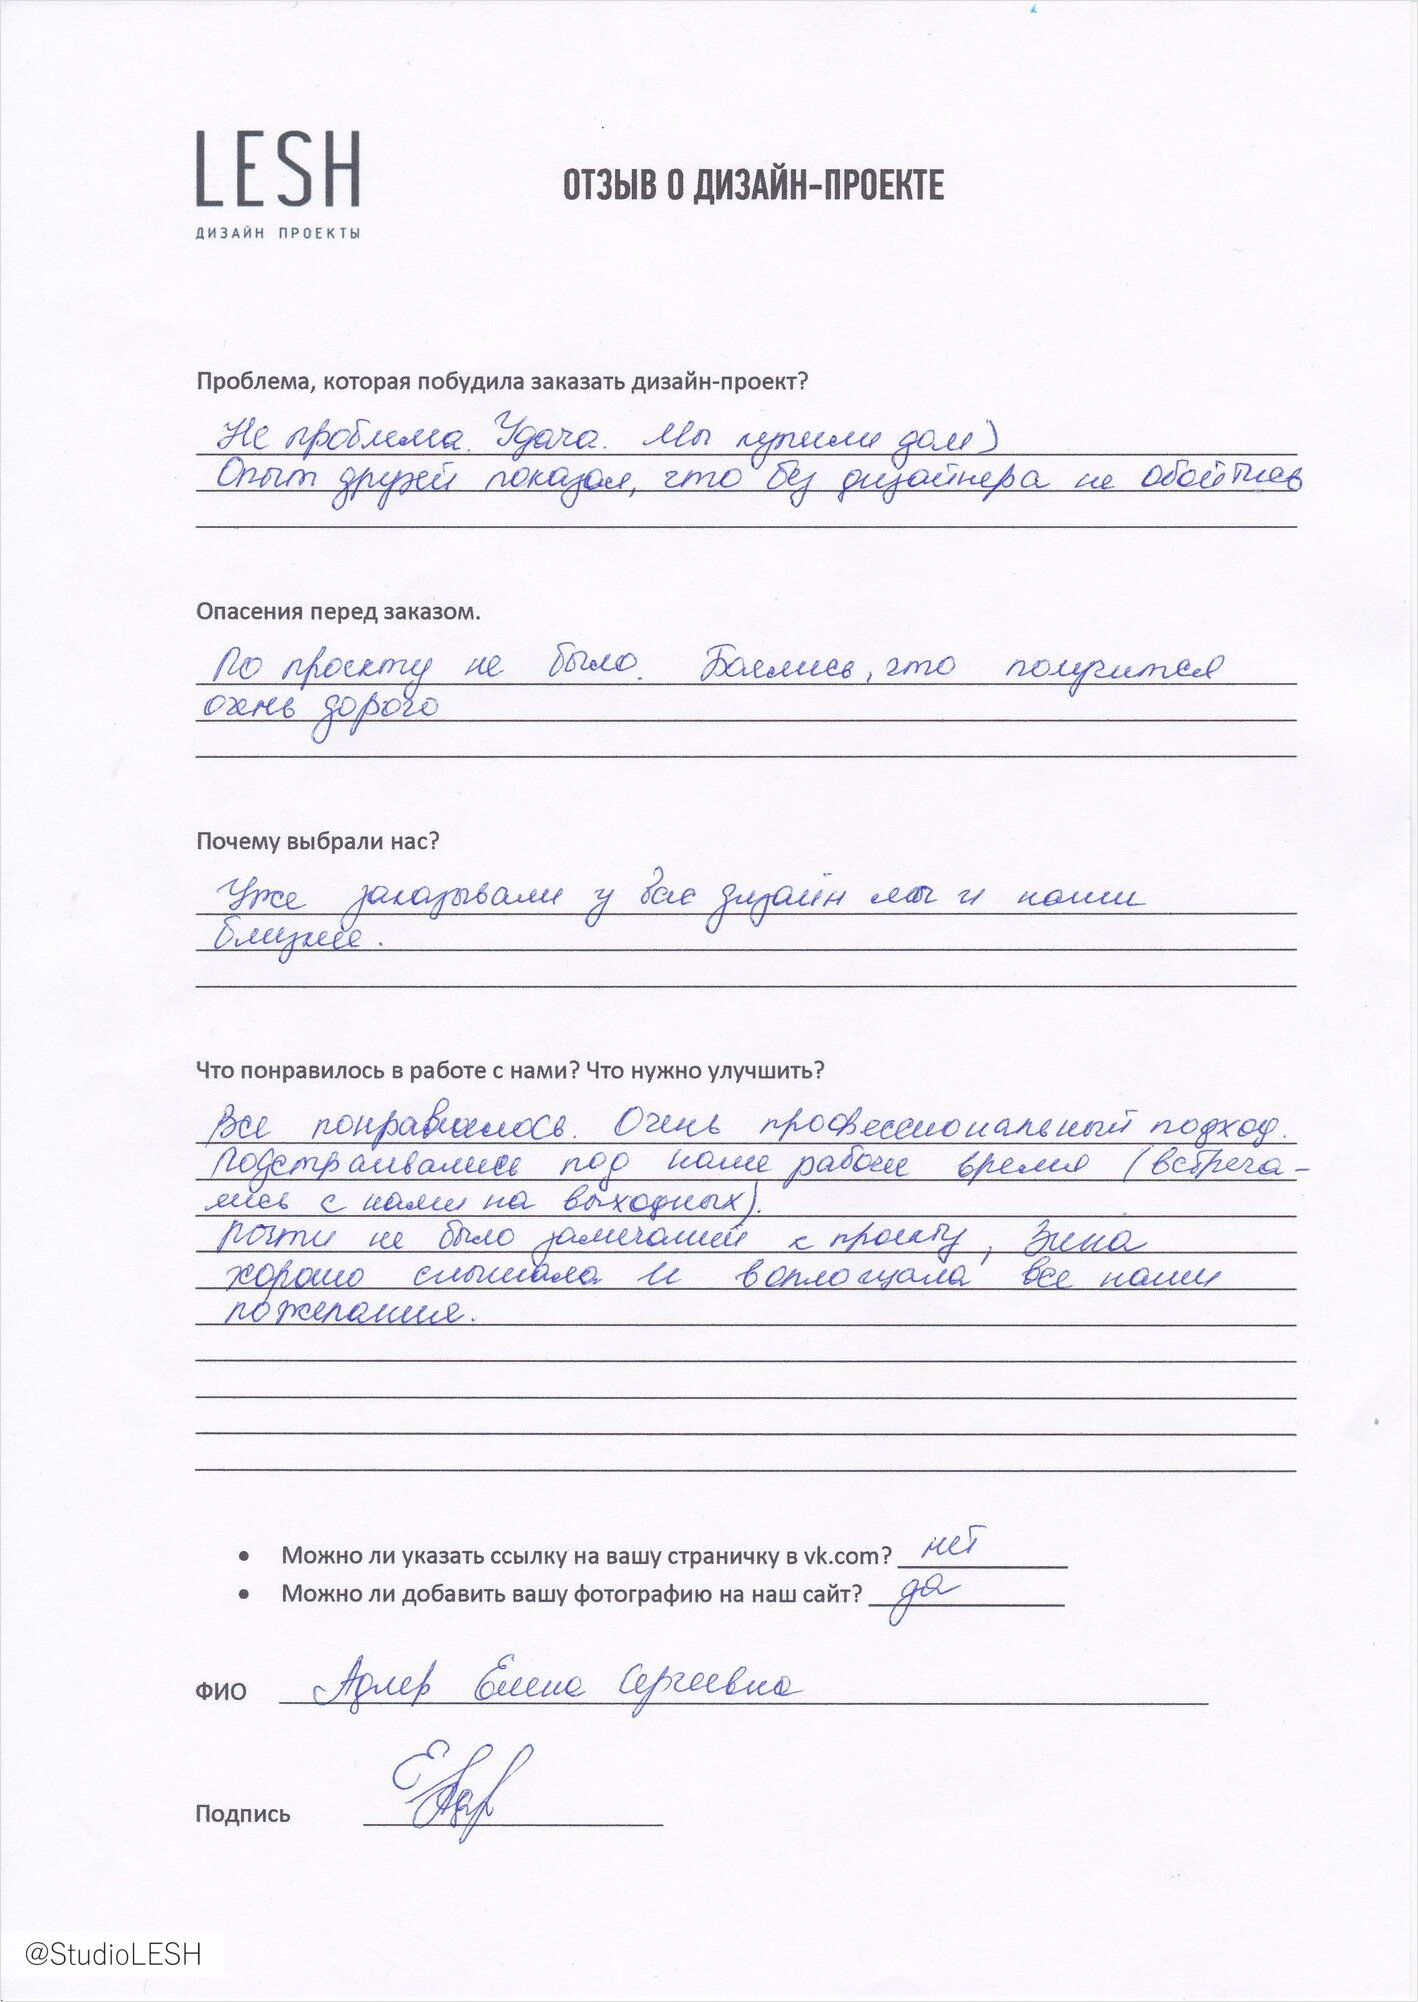 LESH
ДИЗАЙН ПРОЕКТЫ
ОТЗЫВ О ДИЗАЙН-ПРОЕКТЕ
Проблема, которая побудила заказать дизайн-проект?
Не проблема. Удача. Мы купили дом)
Опыт друзей показал, что без дизайнера не обойтись
Опасения перед заказом.
По проекту не было. Боялись, что получится
очень дорого
Почему выбрали нас?
Уже заказывали у Вас дизайн мы и наши
близкие.
Что понравилось в работе с нами? Что нужно улучшить?
Все понравилось. Очень профессиональный подход.
Подстраивались под наше рабочее время (встреча-
лись с нами на выходных).
Почти не было замечаний к проекту, Зина
хорошо слышала и воплощала все наши
пожелания.
• Можно ли указать ссылку на вашу страничку в vk.com? нет
• Можно ли добавить вашу фотографию на наш сайт? да
ФИО Адлер Елена Сергеевна
Подпись
@StudioLESH